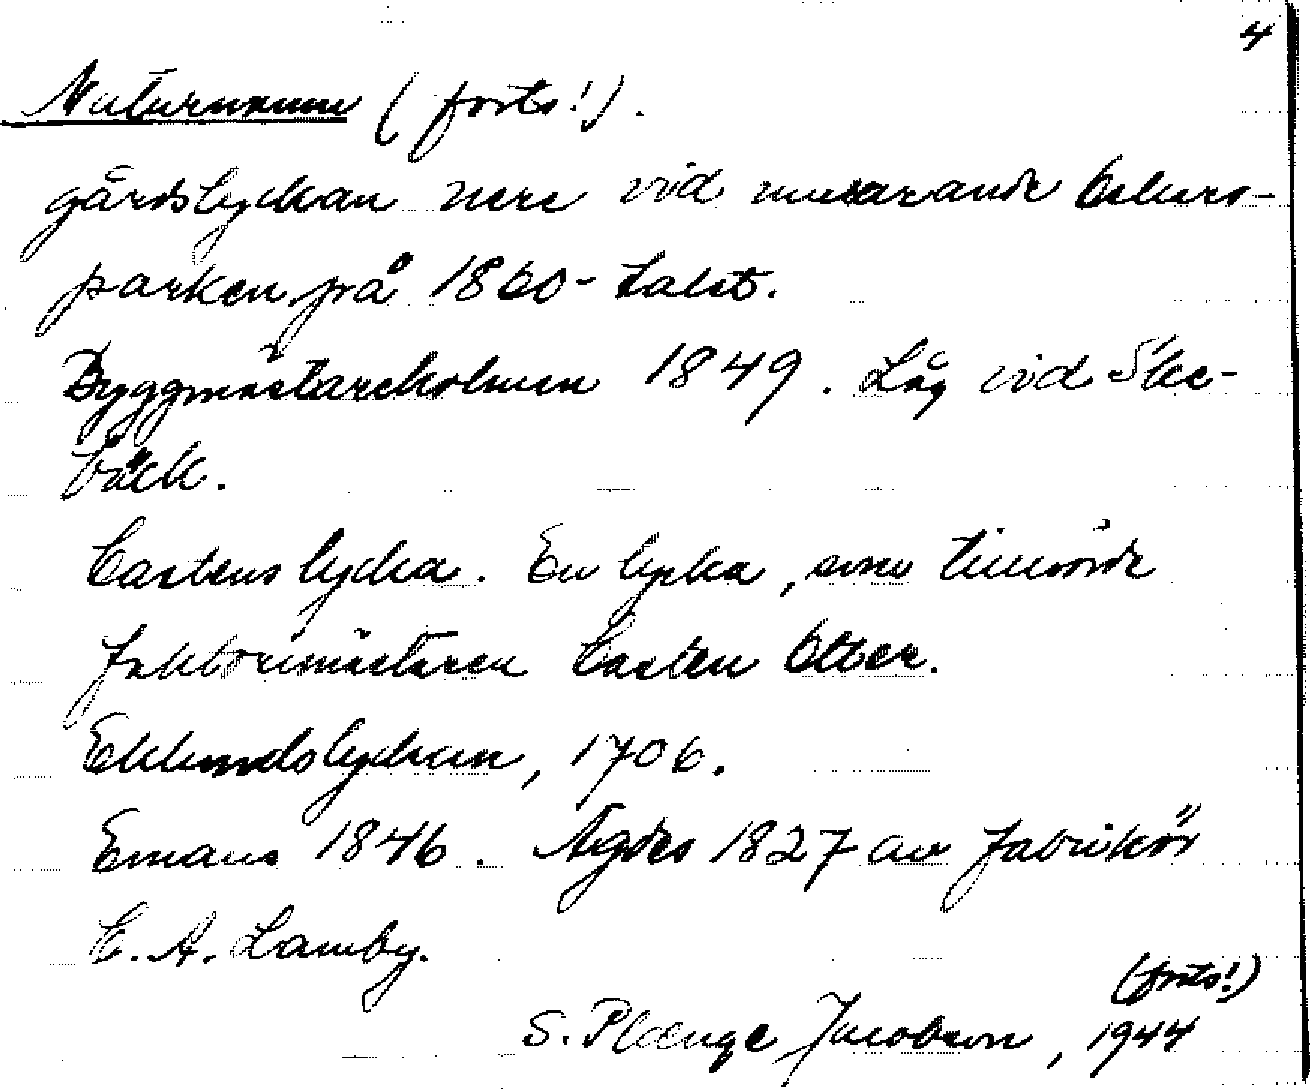 4
Naturnamn (forts!).
gårdslyckan nere vid nuvarande Oskars-
parken på 1860-talet.
Byggmästareholmen 1849. Låg vid Ske-
bäck.
Castens lycka. En lycka, som tillhörde
faktorimästaren Casten Otter.
Eklundslyckan, 1706.
Emaus 1846. Ägdes 1827 av fabrikör
C. A. Lamby.
(forts!)
S. Plænge Jacobson, 1944